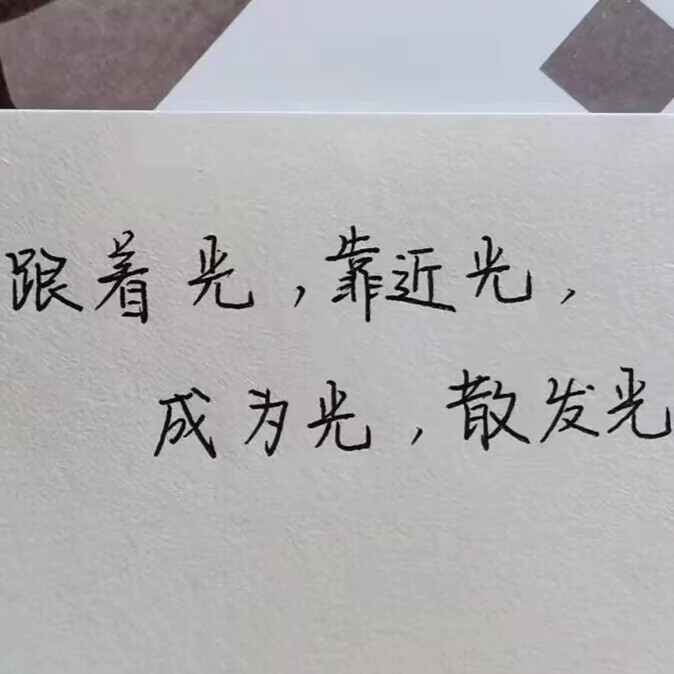 跟着光，靠近光，
成为光，散发光